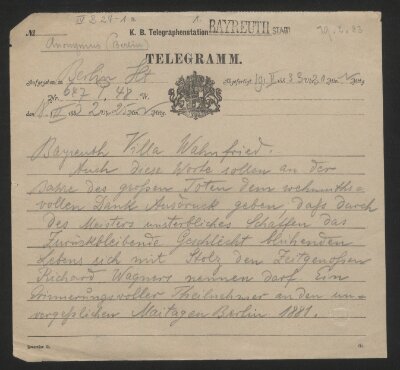 IV A 24-1a
1.
No K. B. Telegraphenstation BAYREUTH STADT
19. 2. 83
Anonymus (Berlin)
TELEGRAMM.
Aufgegeben in Berlin Abgefertigt
Nr. 687 P. 48 W.
den
Bayreuth Villa Wahnfried.
Auch diese Worte sollen an der
Bahre des großen Toten dem wehmuths-
vollen Dank Ausdruck geben daß durch
des Meisters unsterbliches Schaffen das
Zurückbleibende Geschlecht blühenden
Lebens sich mit Stolz den Zeitgenoßen
Richard Wagners nennen darf. Ein
erinnerungsvoller Theilnehmer an den un-
vergeßlichen Maitagen Berlin 1881.